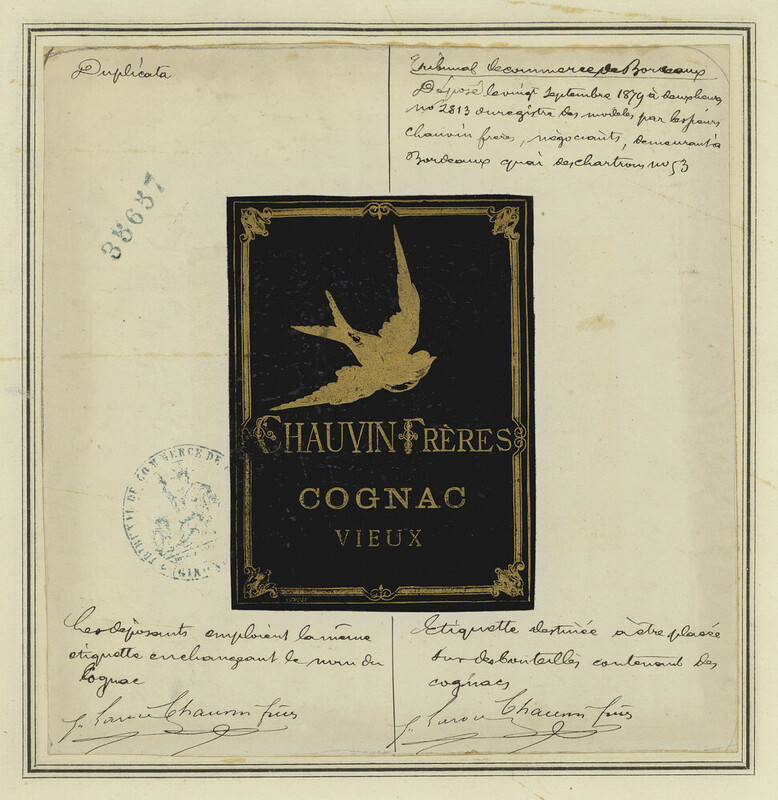 Duplicata
Tribunal de commerce de Bordeaux
Déposé le vingt Septembre 1879 à
no 2813 du registre des modèles par les sieurs
Chauvin frères, négociants, demeurant à
Bordeaux quai des chartrons no 53
33637
CHAUVIN FRÈRES
COGNAC
VIEUX
TRIBUNAL DE COMMERCE DE
Les déposants emploient la même
étiquette en changeant le nom du
Cognac
Chauvin frères
Etiquette destinée à être placée
sur des bouteilles contenant des
cognacs
Chauvin frères